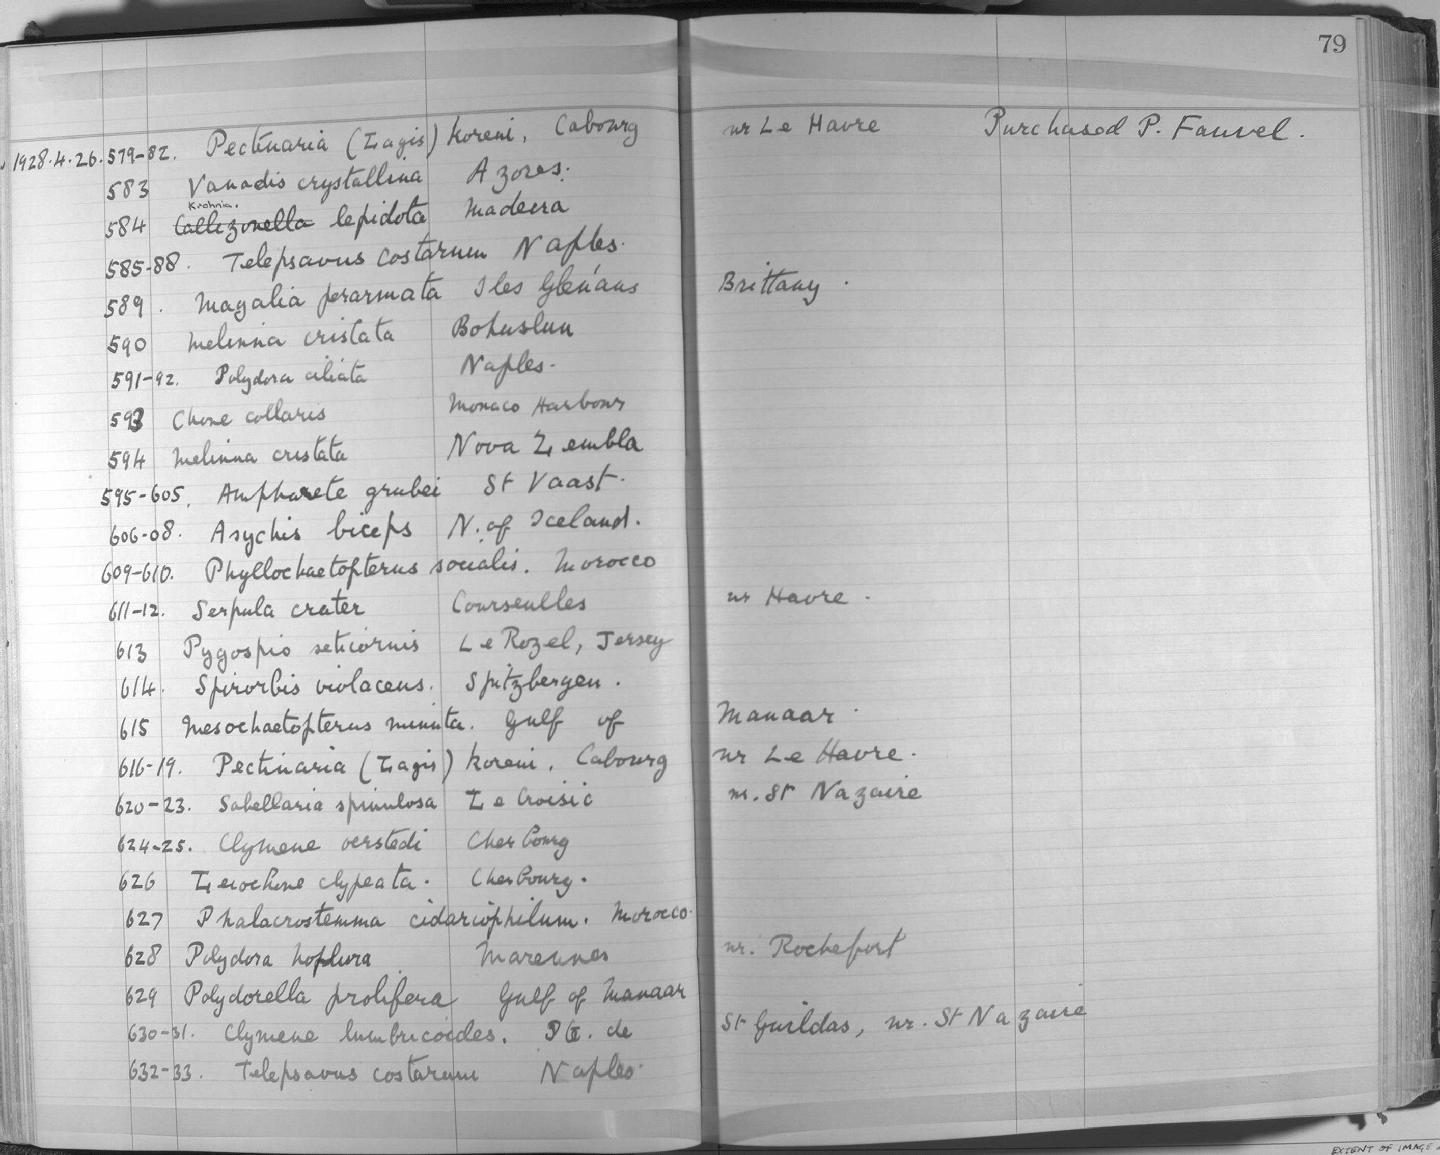 79
1928.4.26.579-82. Pectinaria (Lagis) koreni, Cabourg nr Le Havre Purchased P. Fauvel.
583 Vanadis crystallina Azores.
Krohnia.
584 Callizonella lepidota Madeira
585-88. Telepsavus costarum Naples.
589. Magalia perarmata Iles Glénans Brittany.
590 Melinna cristata Bohuslun
591-92. Polydora ciliata Naples.
593 Chone collaris Monaco Harbour
594 Melinna cristata Nova Zembla
595-605. Ampharete grubei St Vaast.
606-08. Asychis biceps N. of Iceland.
609-610. Phyllochaetopterus socialis. Morocco
611-12. Serpula crater Courseulles nr Havre.
613 Pygospio seticornis Le Rozel, Jersey
614. Spirorbis violaceus. Spitzbergen.
615 Mesochaetopterus minuta. Gulf of Manaar.
616-19. Pectinaria (Lagis) koreni. Cabourg nr Le Havre.
620-23. Sabellaria spinulosa Le Croisic nr. St Nazaire
624-25. Clymene oerstedi Cherbourg
626 Leiochone clypeata. Cherbourg.
627 Phalacrostemma cidariophilum. Morocco.
628 Polydora hoplura Marennes nr. Rochefort
629 Polydorella prolifera Gulf of Manaar
630-31. Clymene lumbricoides. Pt. de St Guildas, nr. St Nazaire
632-33. Telepsavus costarum Naples.
EXTENT OF IMAGE